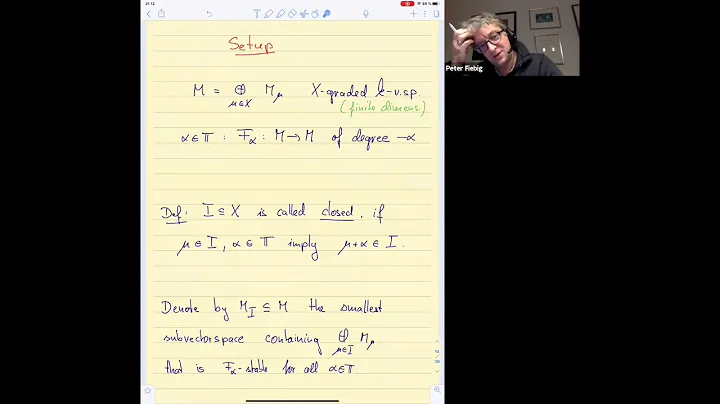 21:12
84 %
Setup
M = ⊕ M_μ X-graded k-v.sp.
μ∈X (finite dimens.)
α∈Π : F_α : M → M of degree -α
Def: I ⊆ X is called closed, if
μ∈I, α∈Π imply μ+α∈I.
Denote by M_I ⊆ M the smallest
subvectorspace containing ⊕ M_μ
μ∈I
that is F_α-stable for all α∈Π
Peter Fiebig